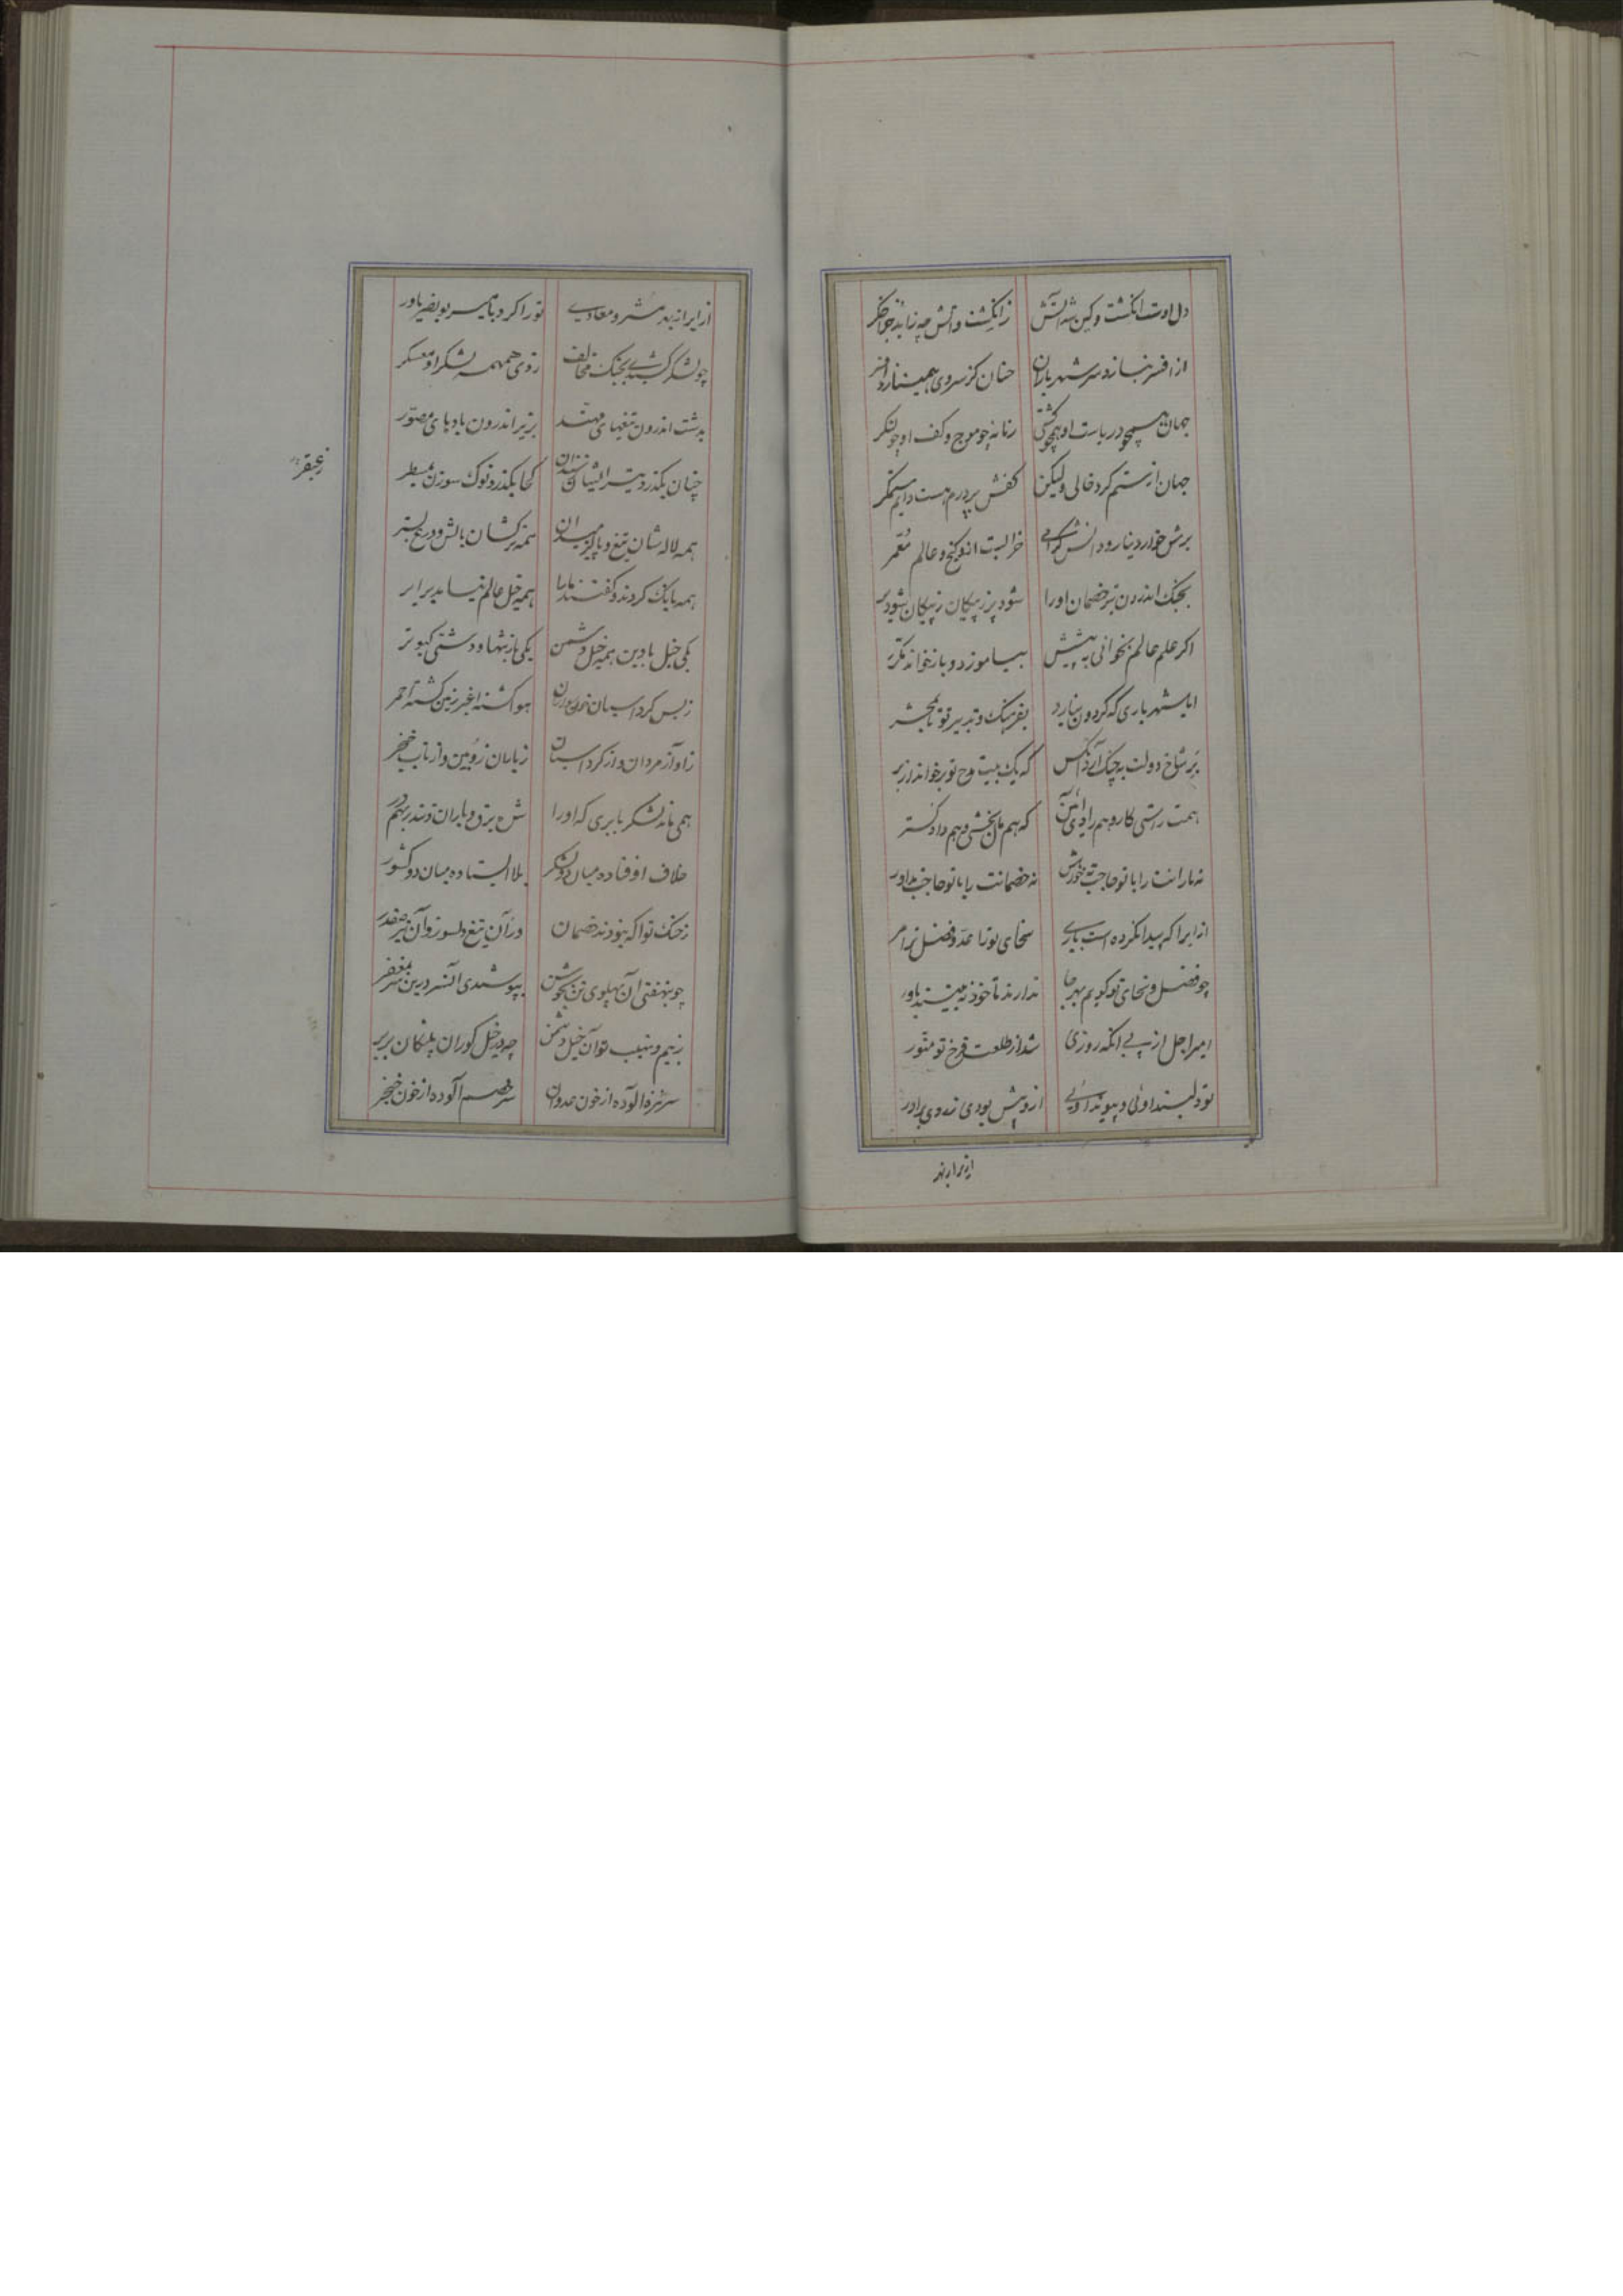 دل اوست انگشت و کین شه آتش ز انگشت و آتش چه زاید جز اخگر
از افسر بنازد سر شهریاران چنان کز سر وی همی نازد افسر
جهان همچو دریاست او همچو کشتی زمانه چو موج و کف او چو لنگر
جهان از ستم کرد خالی ولیکن کفش بر درم هست دایم ستمگر
برش خوار دینار و دانش گرامی خرابست ازو گنج و عالم معمر
بجنک اندرون تیر خصمان او را شود پر ز پیکان ز پیکان شود پر
اکر علم عالم بخوانی به پیشش بیاموزد و باز خواند مکرر
ایا شهریاری که کردون نیارد بفرهنک و تدبیر تو تا بمحشر
بر شاخ دولت به چنک آرد آنکس که یک بیت مدح تو برخواند از بر
همت راستی کار و هم رادی آیین که هم مال بخشی و هم داد کستر
نه یارانت را با تو حاجت به خواهش نه خصمانت را با تو حاجت بداور
ازیرا که پیدا نکرده است باری سخای تو را عد و فضل ترا مر
چو فضل و سخای تو کویم بهر جا ندارند تا خود نه بینند باور
امیر اجل از پی آنکه روزی شد از طلعت فرخ تو منور
تو دلبند اوئی و پیوند اوئی ازو پیش بودی نه وی برادر
ازیرا ز بهر
ازیرا ز بهر عشر و معادی تو را کرد با میر بونصر یاور
چو لشکر کشیدی بجنک مخالف زدی همهمه لشکر او معسکر
بدشت اندرون تیغهای مهند بزیر اندرون بادپای مصور
چنان بکذرد تیر ایشان ز سندان کجا بکذرد نوک سوزن ز عبقر
همه لاله شان تیغ و پالیز میدان همه ترکشان بالش و درع بستر
همه بانک کردند و کفتند ما را همه خیل عالم نیاید برابر
یکی خیل با دین همه خیل دشمن یکی باز تنها و دشتی کبوتر
ز بس کرد اسبان و خون سواران هوا کشته اغبر زمین کشته احمر
ز آواز مردان و از کرد اسبان ز باران زوبین و از تاب خنجر
همی ماند لشکر بابری که او را بود برق و باران و تندر بهم در
خلاف اوفتاده میان دو لشکر بلا ایستاده میان دو کشور
ز جنک تو آگه نبودند خصمان وز آن تیغ دلسوز و آن تیر صفدر
چو بنهفتی آن پهلوی تن بجوشن بپوشیدی آن سر درین بمغفر
ز بیم و نهیب تو آن خیل دشمن چه دید خیل کوران پلنکان بربر
سر نیزه آلوده از خون عدوان سر خصم آلوده از خون خنجر
ز عبقر